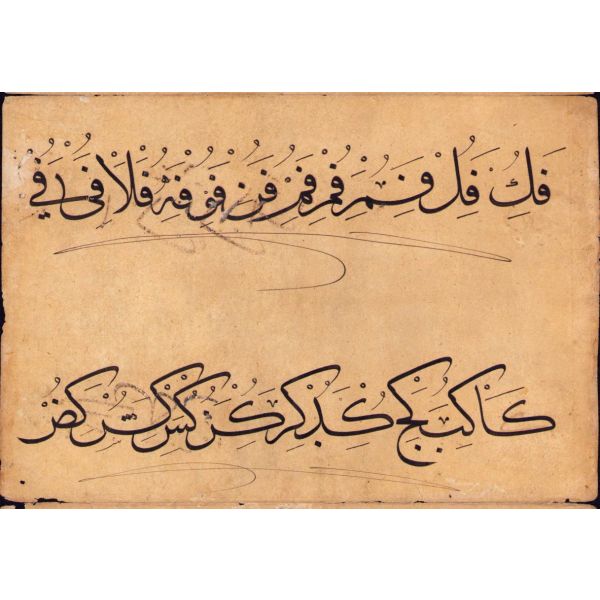 فك فل فم فمر فمر فن فو فه فلا فى فى
كا كب كج كد كر كر كس كش كر كص